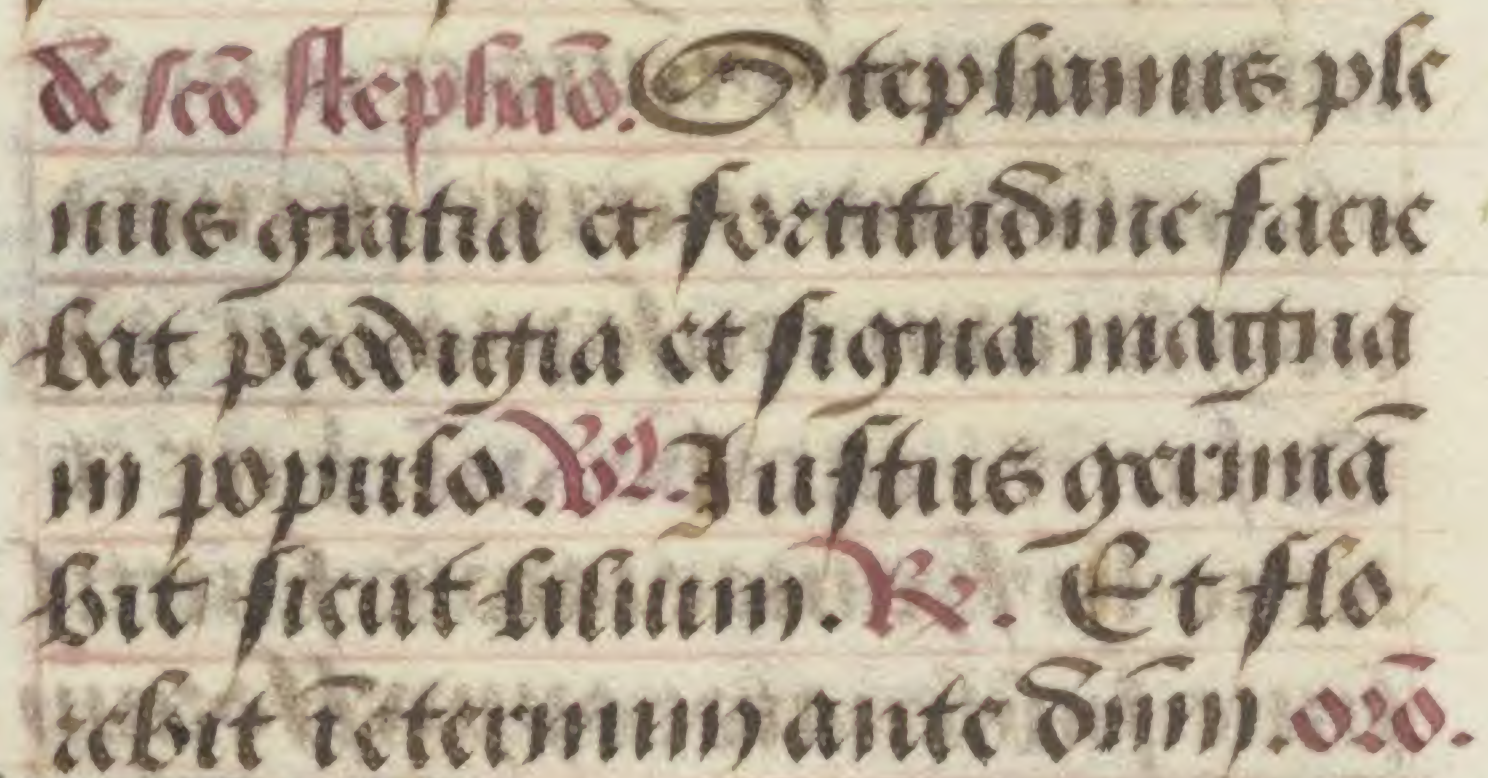 de scō stephāō. Stephanus ple
nus gratia et fortitudine facie
bat prodigia et signa magna
in populo. V̷. Iustus germinā
bit sicut lilium. R̷. Et flo
rebit īeternum ante dn̄m. orō.